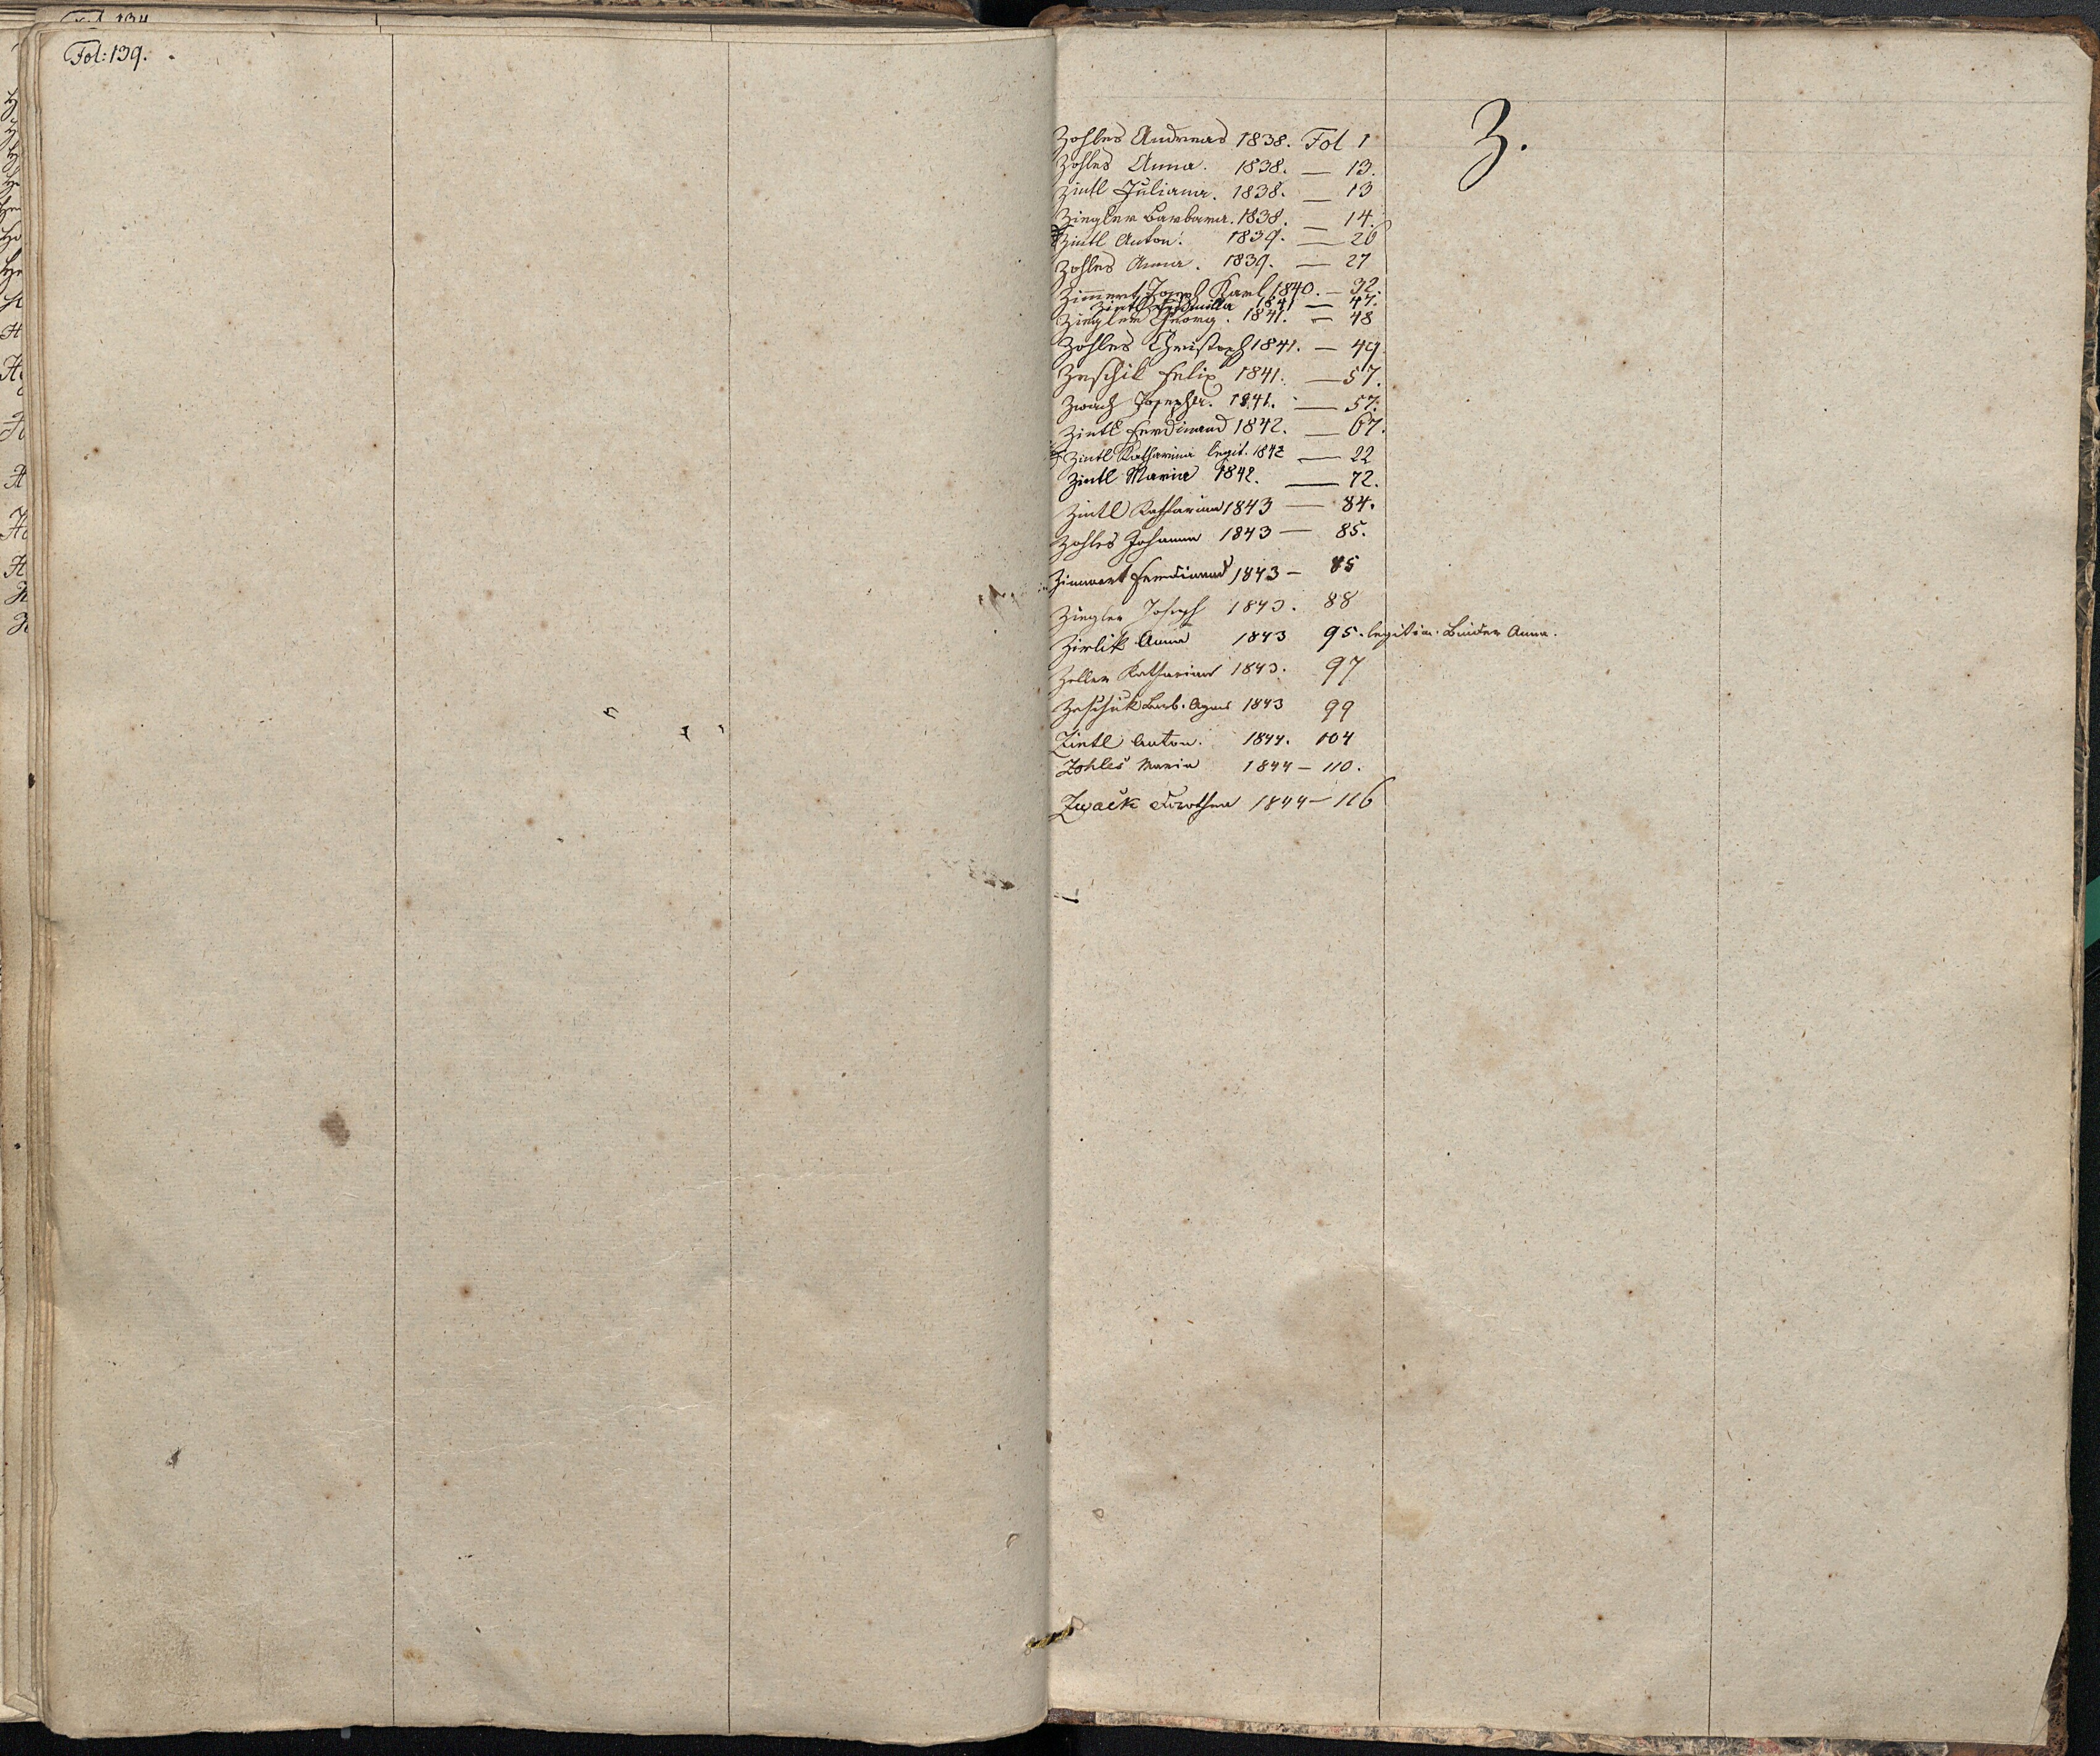 Fol: 139.
Z.
Zohles Andreas 1838. Fol 1
Zohles Anna. 1838. — 13.
Zintl Juliana. 1838. — 13
Ziegler Barbara. 1838. — 14.
Zintl Anton. 1839. — 26
Zohles Anna. 1839. — 27
Zimmert Joseph Karl 1840. — 32.
Zintl Ludmilla 1841 — 47.
Ziegler Georg. 1841. — 48
Zohles Christoph 1841. — 49
Zeschik Felix 1841. — 57.
Zwack Josepha. 1841. — 57.
Zintl Ferdinand 1842. — 67.
Zintl Katharina legit. 1842 — 22
Zintl Maria 1842. — 72.
Zintl Katharina 1843 — 84.
Zohles Johann 1843 — 85.
Zimmert Ferdinand 1843 — 85
Ziegler Joseph 1843. 88
Zirlik Anna 1843 95. legitim. Binder Anna.
Zeller Katharina 1843. 97
Zeschik Barb. Agnes 1843 99
Zintl Anton. 1844. 104
Zohles Maria 1844 — 110.
Zwack Dorothea 1844 — 116